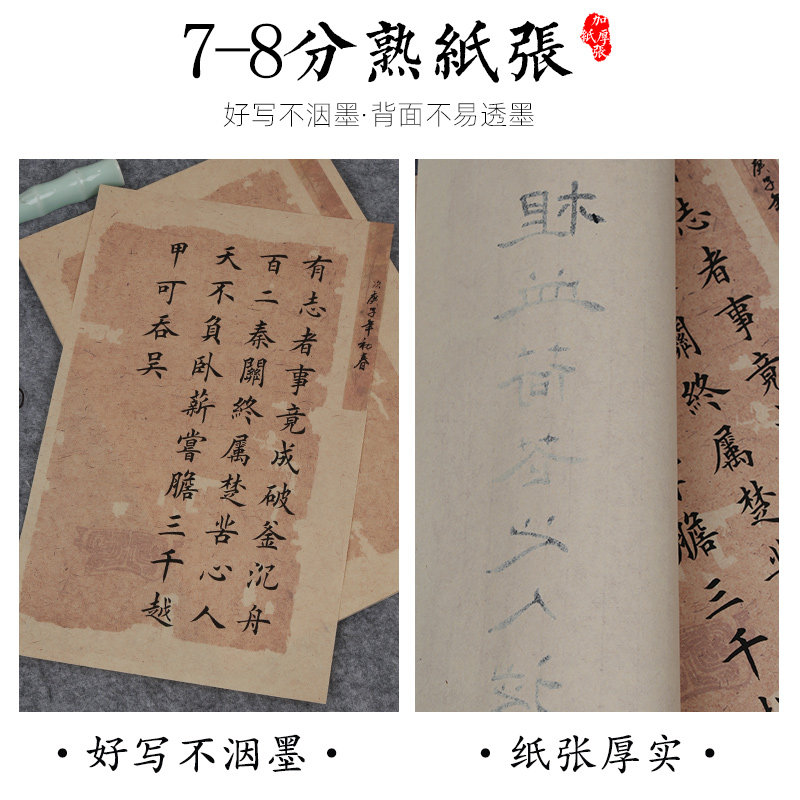 7-8分熟紙張
加厚
紙張
好写不洇墨·背面不易透墨
庚子年初春
有志者事竟成破釜沉舟
百二秦關終屬楚苦心人
天不負臥薪嘗膽三千越
甲可吞吳
庚子年
志者事竟
關終屬楚
膽三千
·好写不洇墨·
·纸张厚实·